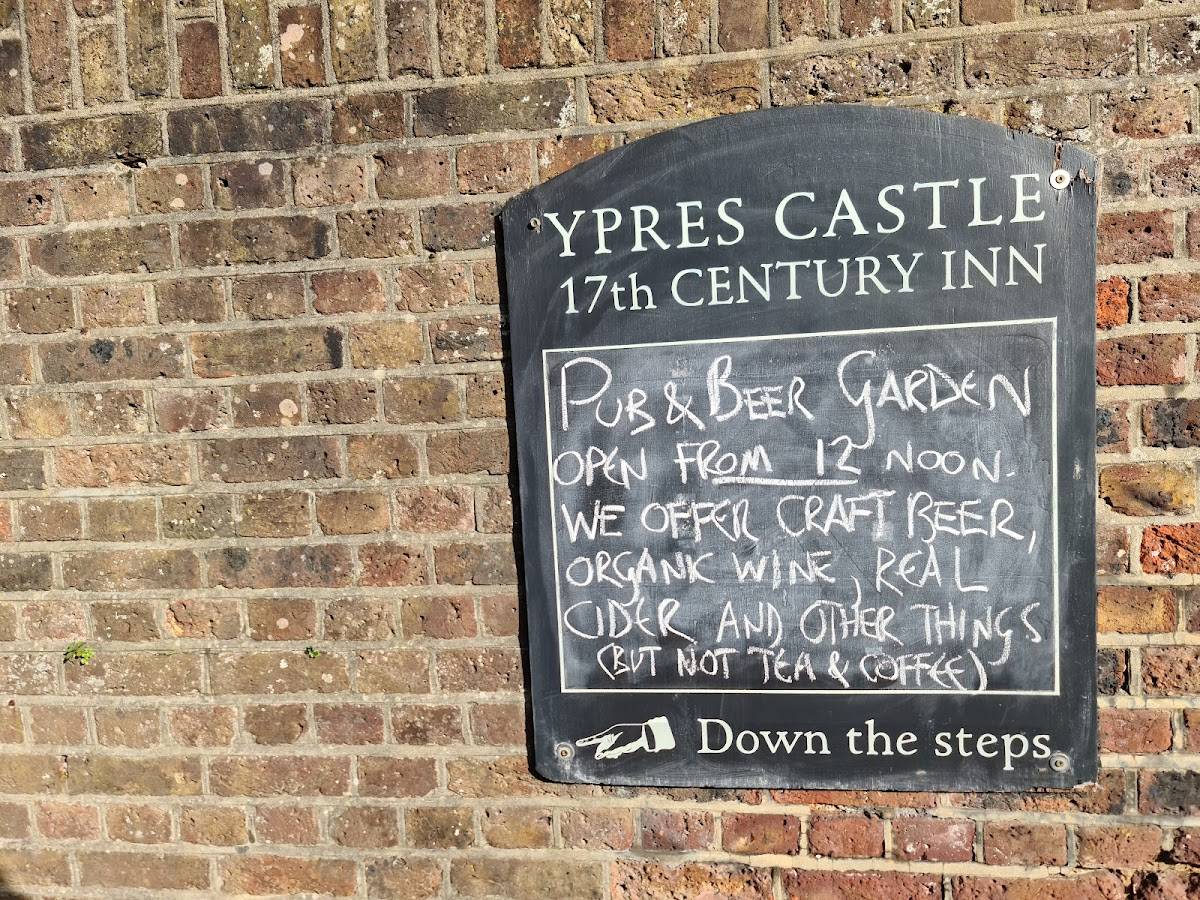 YPRES CASTLE
17th CENTURY INN
PUB & BEER GARDEN
OPEN FROM 12 NOON.
WE OFFER CRAFT BEER,
ORGANIC WINE, REAL
CIDER AND OTHER THINGS
(BUT NOT TEA & COFFEE)
Down the steps